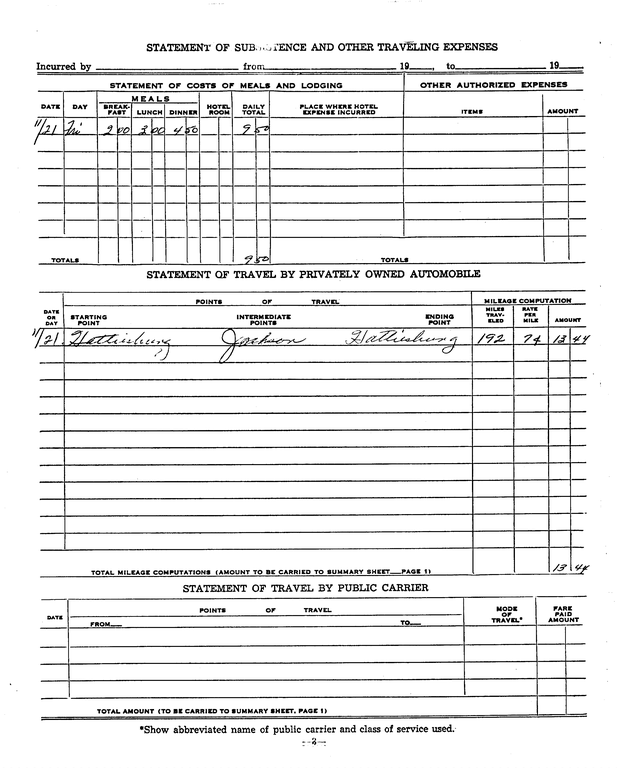 STATEMENT OF SUBSISTENCE AND OTHER TRAVELING EXPENSES
Incurred by from 19 , to 19
STATEMENT OF COSTS OF MEALS AND LODGING OTHER AUTHORIZED EXPENSES
MEALS
DATE DAY BREAK-FAST LUNCH DINNER HOTEL ROOM DAILY TOTAL PLACE WHERE HOTEL EXPENSE INCURRED ITEMS AMOUNT
11/21 Fri 2 00 3 00 4 50 9 50
TOTALS 9 50 TOTALS
STATEMENT OF TRAVEL BY PRIVATELY OWNED AUTOMOBILE
POINTS OF TRAVEL MILEAGE COMPUTATION
DATE OR DAY STARTING POINT INTERMEDIATE POINTS ENDING POINT MILES TRAV-ELED RATE PER MILE AMOUNT
11/21 Hattiesburg Jackson Hattiesburg 192 7¢ 13 44
TOTAL MILEAGE COMPUTATIONS (AMOUNT TO BE CARRIED TO SUMMARY SHEET—PAGE 1) 13 44
STATEMENT OF TRAVEL BY PUBLIC CARRIER
DATE POINTS OF TRAVEL MODE OF TRAVEL* FARE PAID AMOUNT
FROM— TO—
TOTAL AMOUNT (TO BE CARRIED TO SUMMARY SHEET, PAGE 1)
*Show abbreviated name of public carrier and class of service used.
—2—